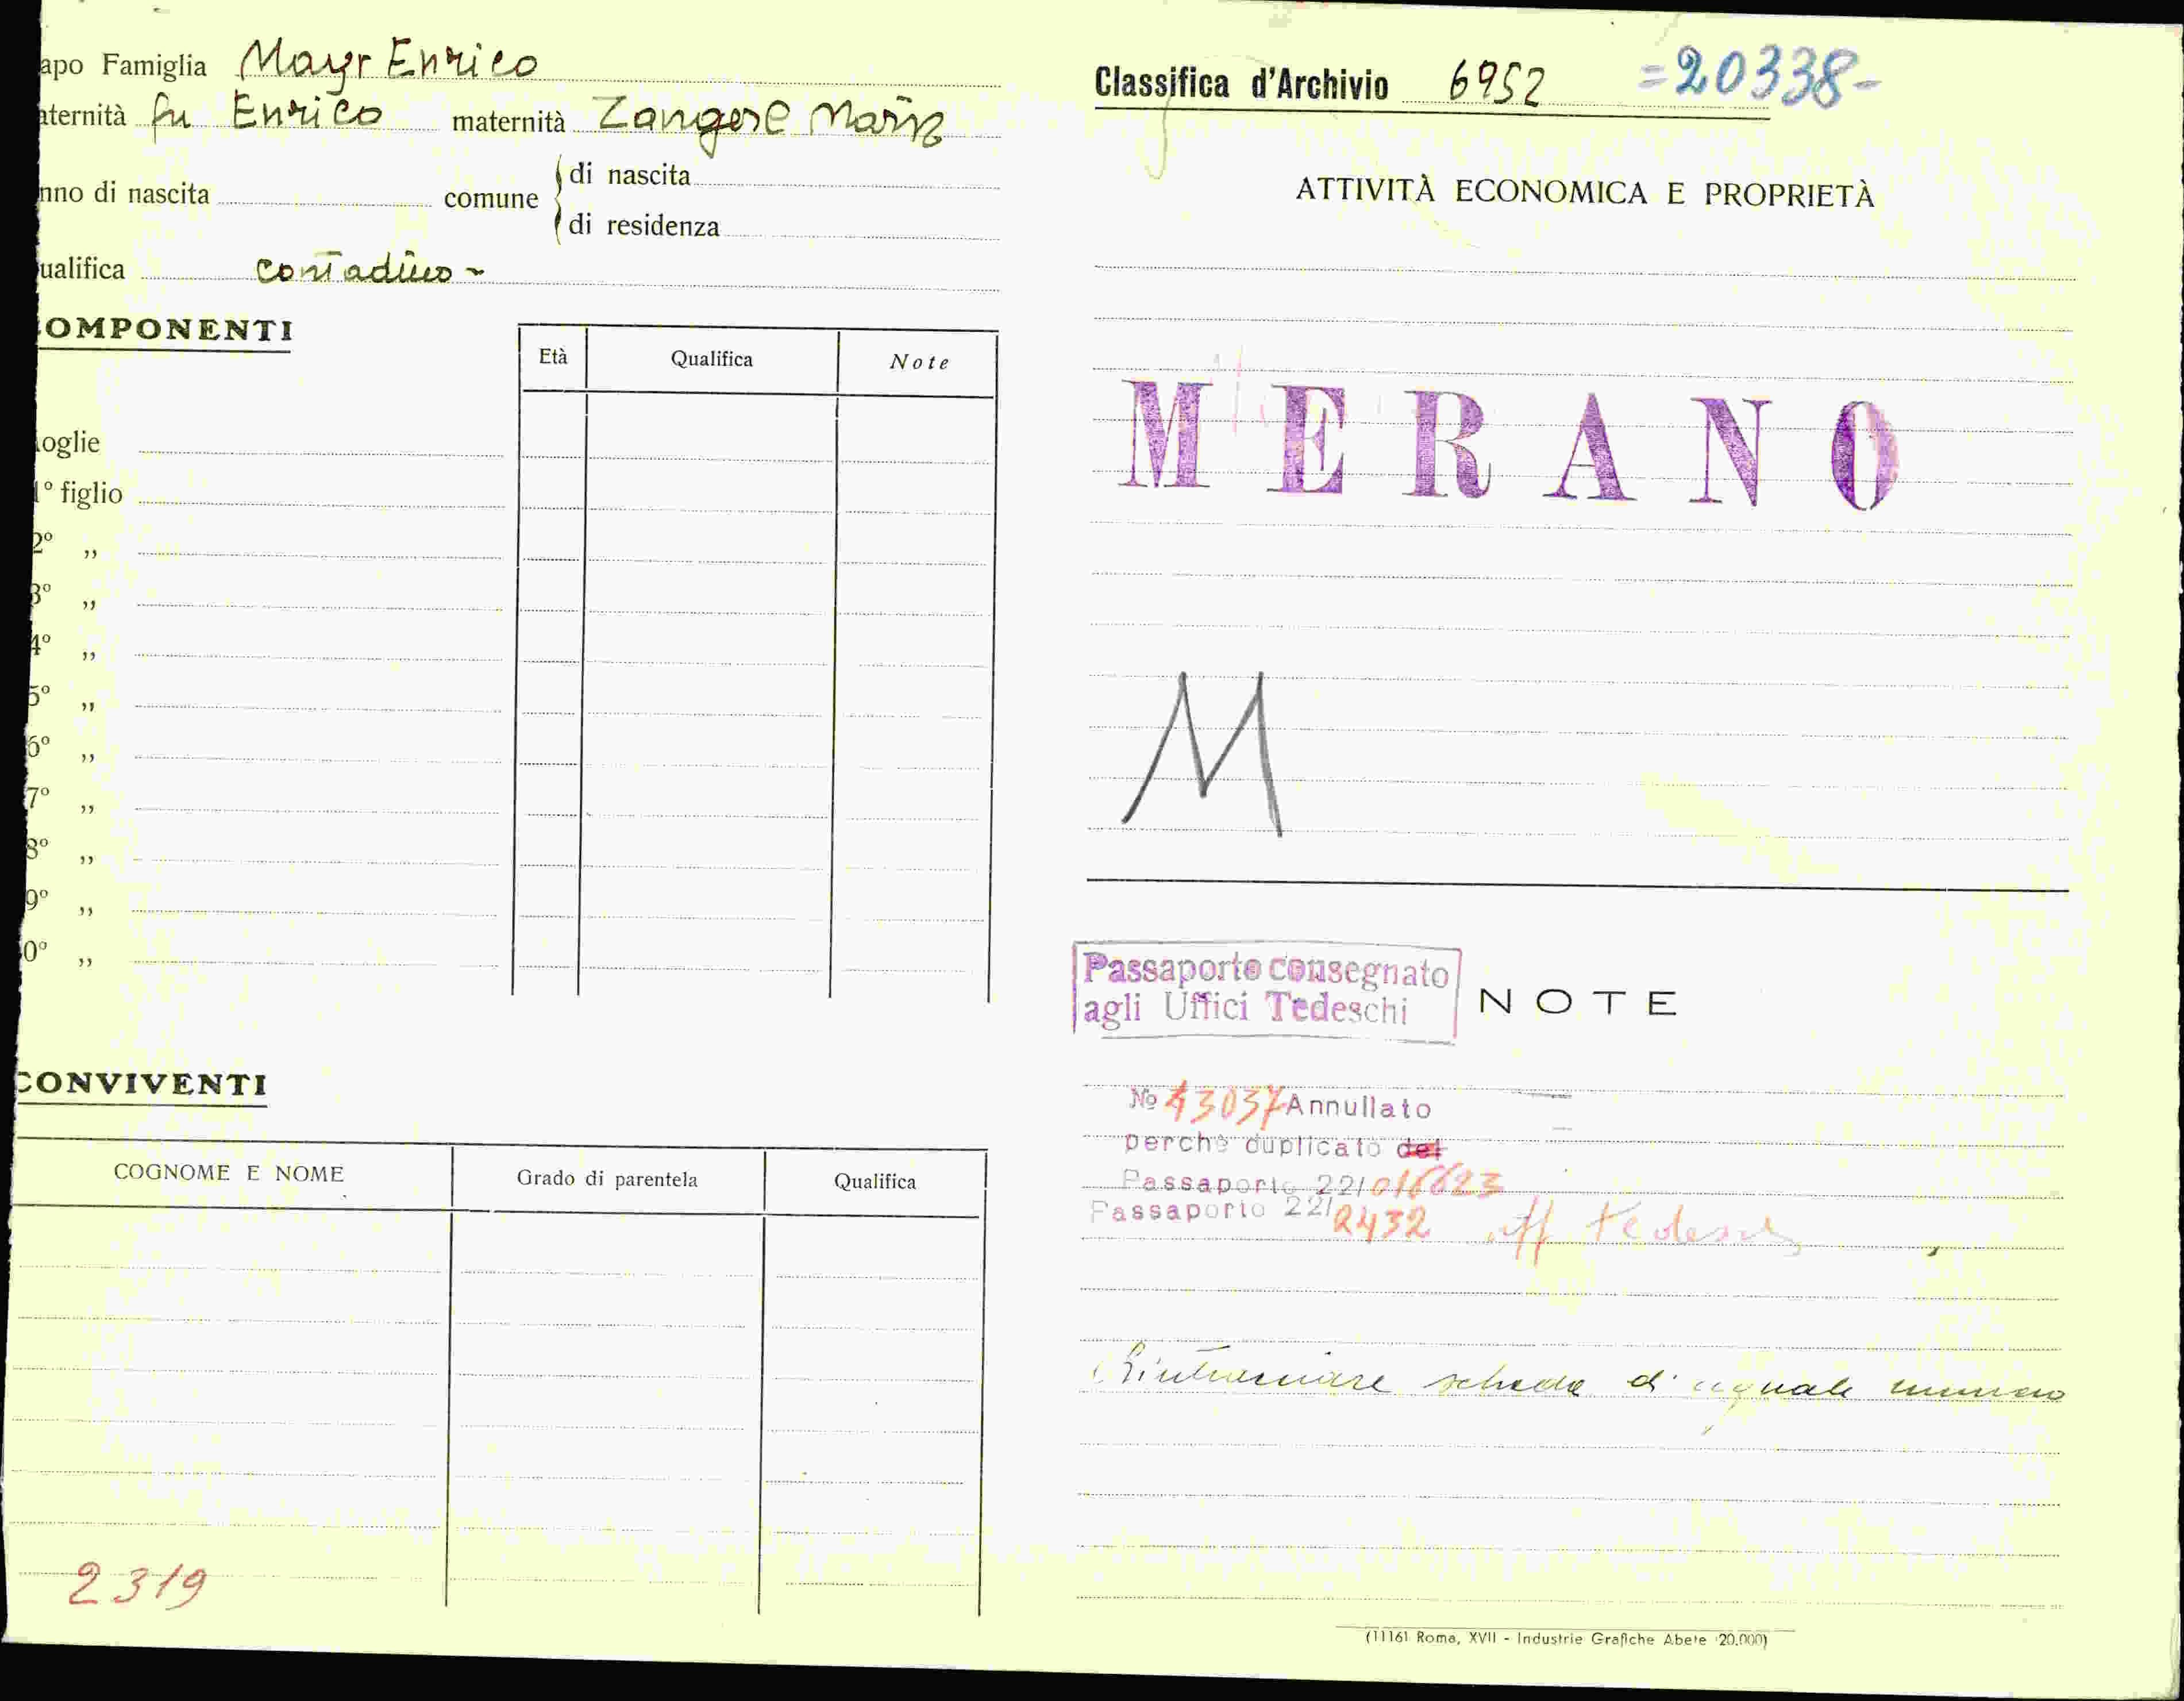 apo Famiglia Mayr Enrico
aternità fu Enrico maternità Zangerle Maria
nno di nascita comune di nascita
di residenza
ualifica contadino -
OMPONENTI
Età Qualifica Note
oglie
1º figlio
2º „
3º „
4º „
5º „
6º „
7º „
8º „
9º „
0º „
CONVIVENTI
COGNOME E NOME Grado di parentela Qualifica
2319
Classifica d'Archivio 6952 =20338-
ATTIVITÀ ECONOMICA E PROPRIETÀ
MERANO
M
Passaporto consegnato
agli Uffici Tedeschi
NOTE
Nº 43037 Annullato
perchè duplicato del
Passaporto 22/016623
Passaporto 22/2432 uff tedeschi
scheda di uguale numero
(11161 Roma, XVII - Industrie Grafiche Abete 20.000)